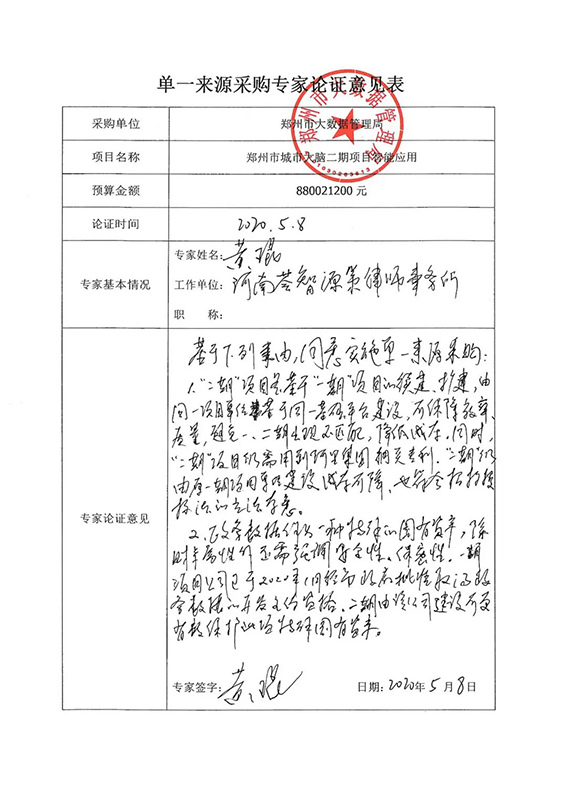 单一来源采购专家论证意见表
采购单位 郑州市大数据管理局
项目名称 郑州市城市大脑二期项目智能应用
预算金额 880021200 元
论证时间 2020.5.8
专家基本情况
专家姓名: 黄琨
工作单位: 河南荟智源策律师事务所
职 称:
专家论证意见
基于下列事由,同意实施单一来源采购:
1."二期"项目是基于"一期"项目的续建、扩建,由
同一项目单位基于同一基础平台建设,可保障效率、
质量,避免一、二期出现不匹配,降低成本。同时,
"二期"项目仍需用到阿里集团相关专利."二期"仍
由原一期项目单位建设成本可降,也符合招投标
法的立法本意。
2.政务数据作为一种特殊的国有资产,除
财产属性外还需强调安全性、保密性。一期
项目公司已于2020年1月经市政府批准取得政
务数据的开发
二期由该公司建设可更
有效保护此项特殊国有资产。
专家签字: 黄琨 日期: 2020年5月8日
郑州市大数据管理局